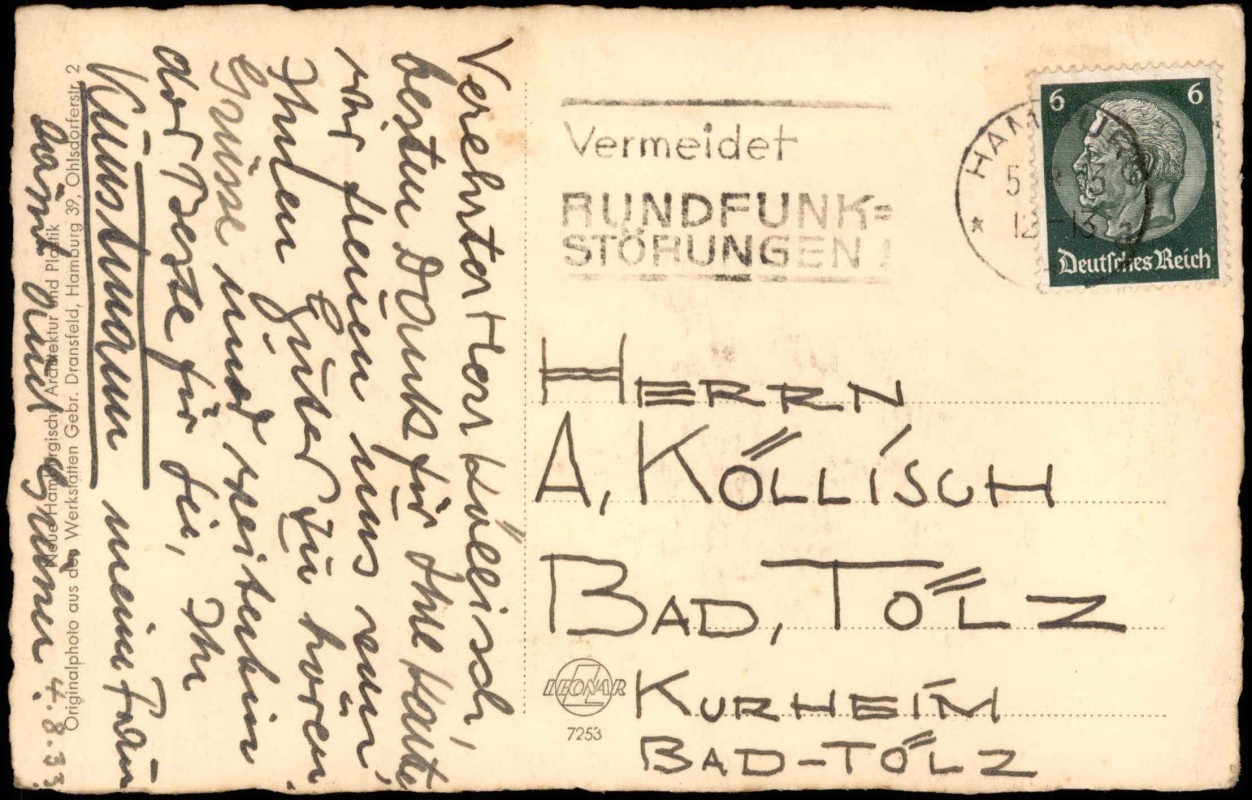 Verehrter Herr Köllisch,
besten Dank für Ihre Karte
wir freuen uns von
Ihnen Gutes zu hören.
Grüsse und weiterhin
das Beste für Sie, Ihr
Kunstmann meine Frau
lässt auch grüssen 4.8.33
Neue Hamburgische Architektur und Plastik
Originalphoto aus den Werkstätten Gebr. Dransfeld, Hamburg 39, Ohlsdorferstr. 2
Vermeidet
RUNDFUNK=
STÖRUNGEN!
HAMBURG
5
12-13
6 6
Deutsches Reich
HERRN
A, KÖLLISCH
BAD, TÖLZ
KURHEIM
BAD-TÖLZ
LEONAR
7253